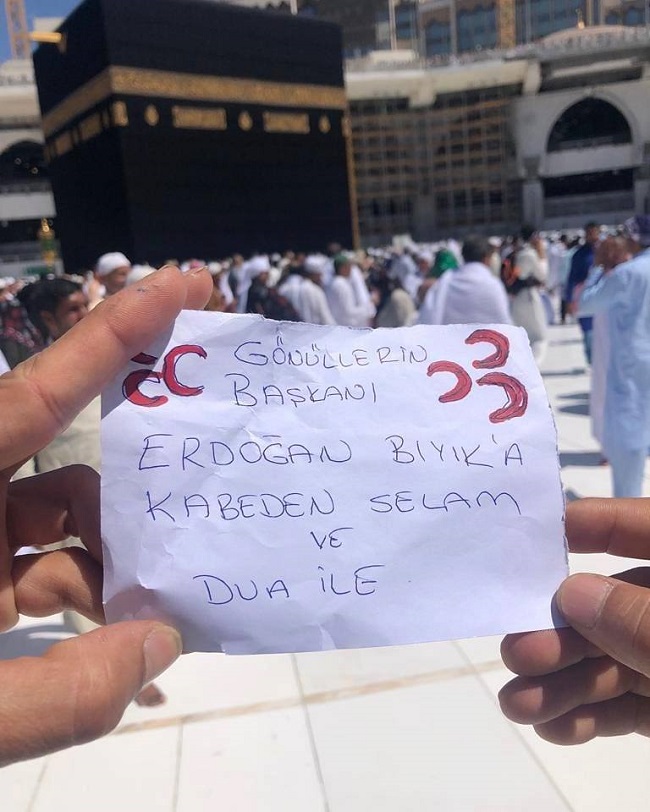 GÖNÜLLERİN
BAŞKANI
ERDOĞAN BIYIK'A
KABEDEN SELAM
VE
DUA İLE